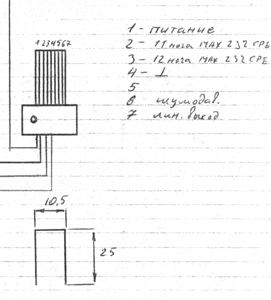 1234567
1 - питание
2 - 11 нога MAX 232 CPE
3 - 12 нога MAX 232 CPE
4 - ⊥
5
6 шумодав.
7 лин. выход
10,5
25